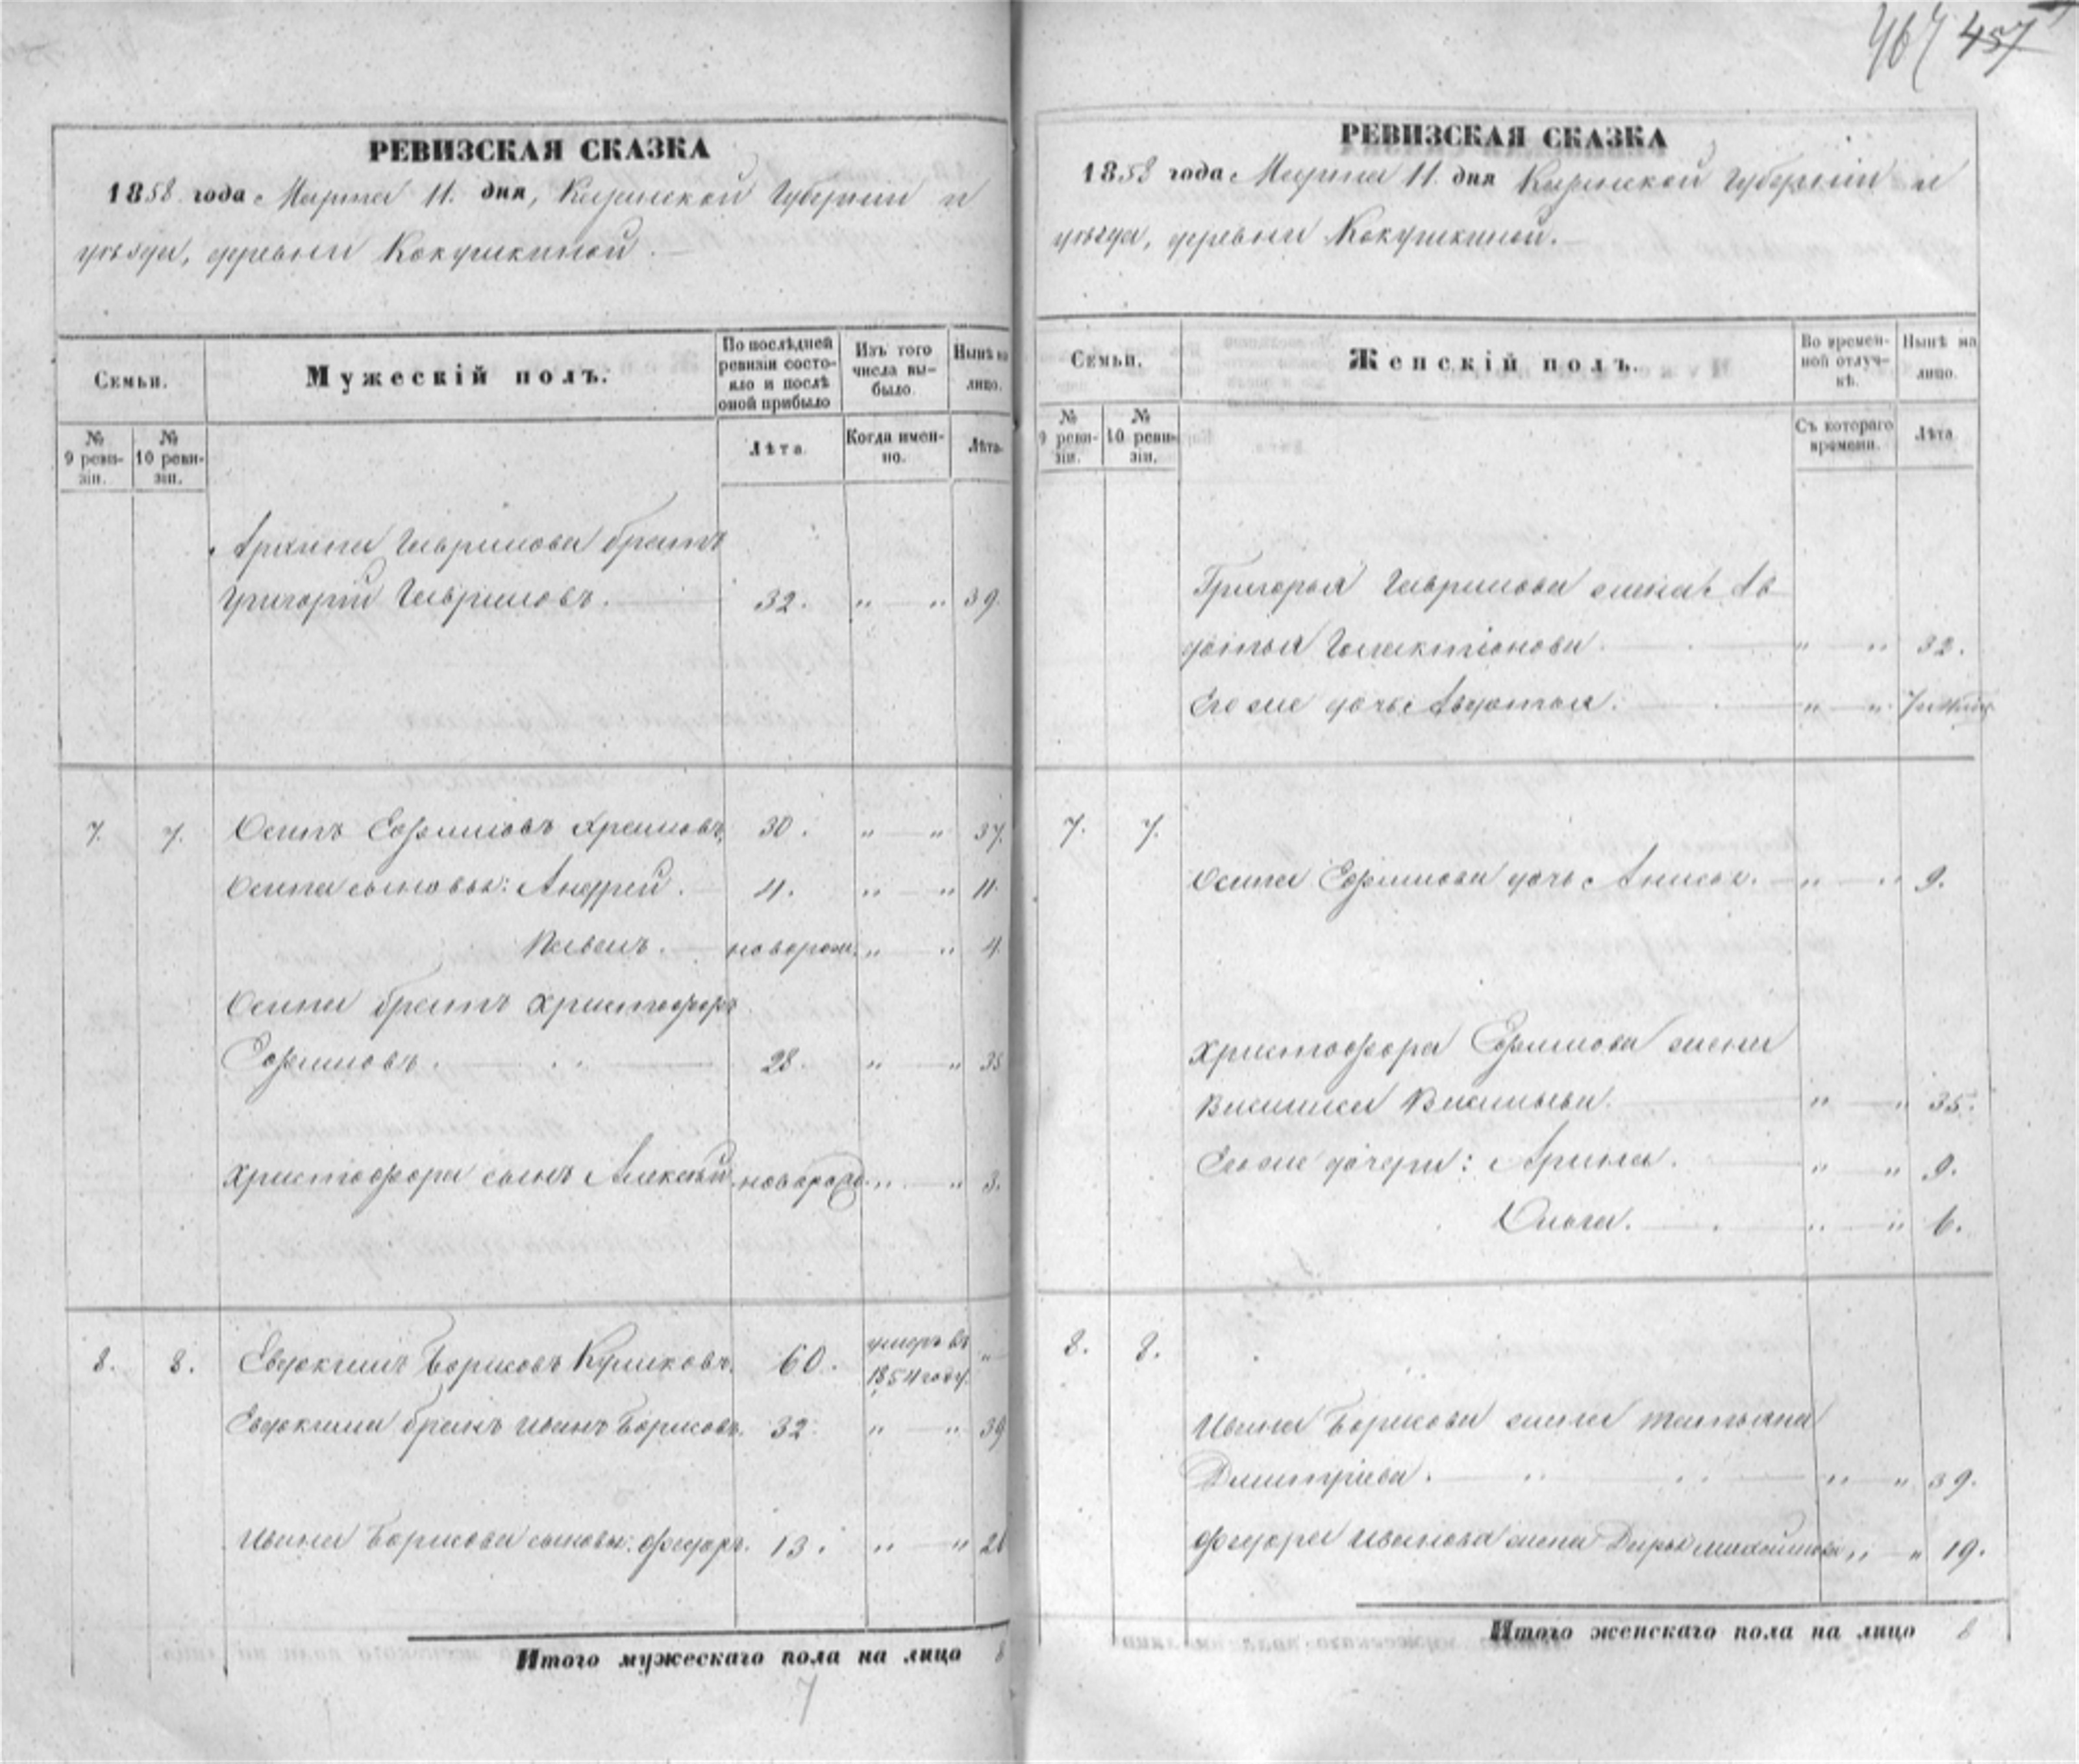 457
РЕВИЗСКАЯ СКАЗКА
1858 года Марта 11. дня, Губерніи и
уѣзда, деревни Кокушкиной.
Семьи.
Мужескій полъ.
По послѣдней ревизіи состояло и послѣ оной прибыло
Изъ того числа выбыло.
Нынѣ на лицо.
№ 9 ревизіи.
№ 10 ревизіи.
Лѣта.
Когда именно.
Лѣта.
Архипа Гаврилова братъ
Григорій Гавриловъ. 32. „ — „ 39.
7. 7. Осипъ Ефимовъ 30. „ — „ 37.
Осипа сыновья: Андрей. 4. „ — „ 11.
новорож. „ — „ 4.
Осипа братъ Христофоръ
Ефимовъ. 28. „ — „ 35
Христофора сынъ Алексѣй. новорожд. „ — „ 3.
8. 8. Евдокимъ Борисовъ 60. умеръ въ 1854 году. „
Евдокима братъ Иванъ Борисовъ. 32. „ — „ 39
Ивана Борисова сыновья: Федоръ. 13. „ — „ 20
Итого мужескаго пола на лицо 8
7
РЕВИЗСКАЯ СКАЗКА
1858 года Марта 11. дня Губерніи и
уѣзда, деревни Кокушкиной.
Семьи.
Женскій полъ.
Во временной отлучкѣ.
Нынѣ на лицо.
№ 9 ревизіи.
№ 10 ревизіи.
Съ котораго времени.
Лѣта.
Григорья Гаврилова жена Ав
дотья Галактіонова. „ — „ 32.
Его же дочь Авдотья. „ — „
7. 7.
Осипа Ефимова дочь Анисья. „ — „ 9.
Христофора Ефимова жена
Василиса Васильева. „ — „ 35.
Его же дочери: Арина. „ — „ 9.
Ольга. „ — „ 6.
8. 8.
Ивана Борисова жена Татьяна
Дмитріева. „ — „ 39.
Федора Иванова жена Дарья „ — „ 19.
Итого женскаго пола на лицо 8